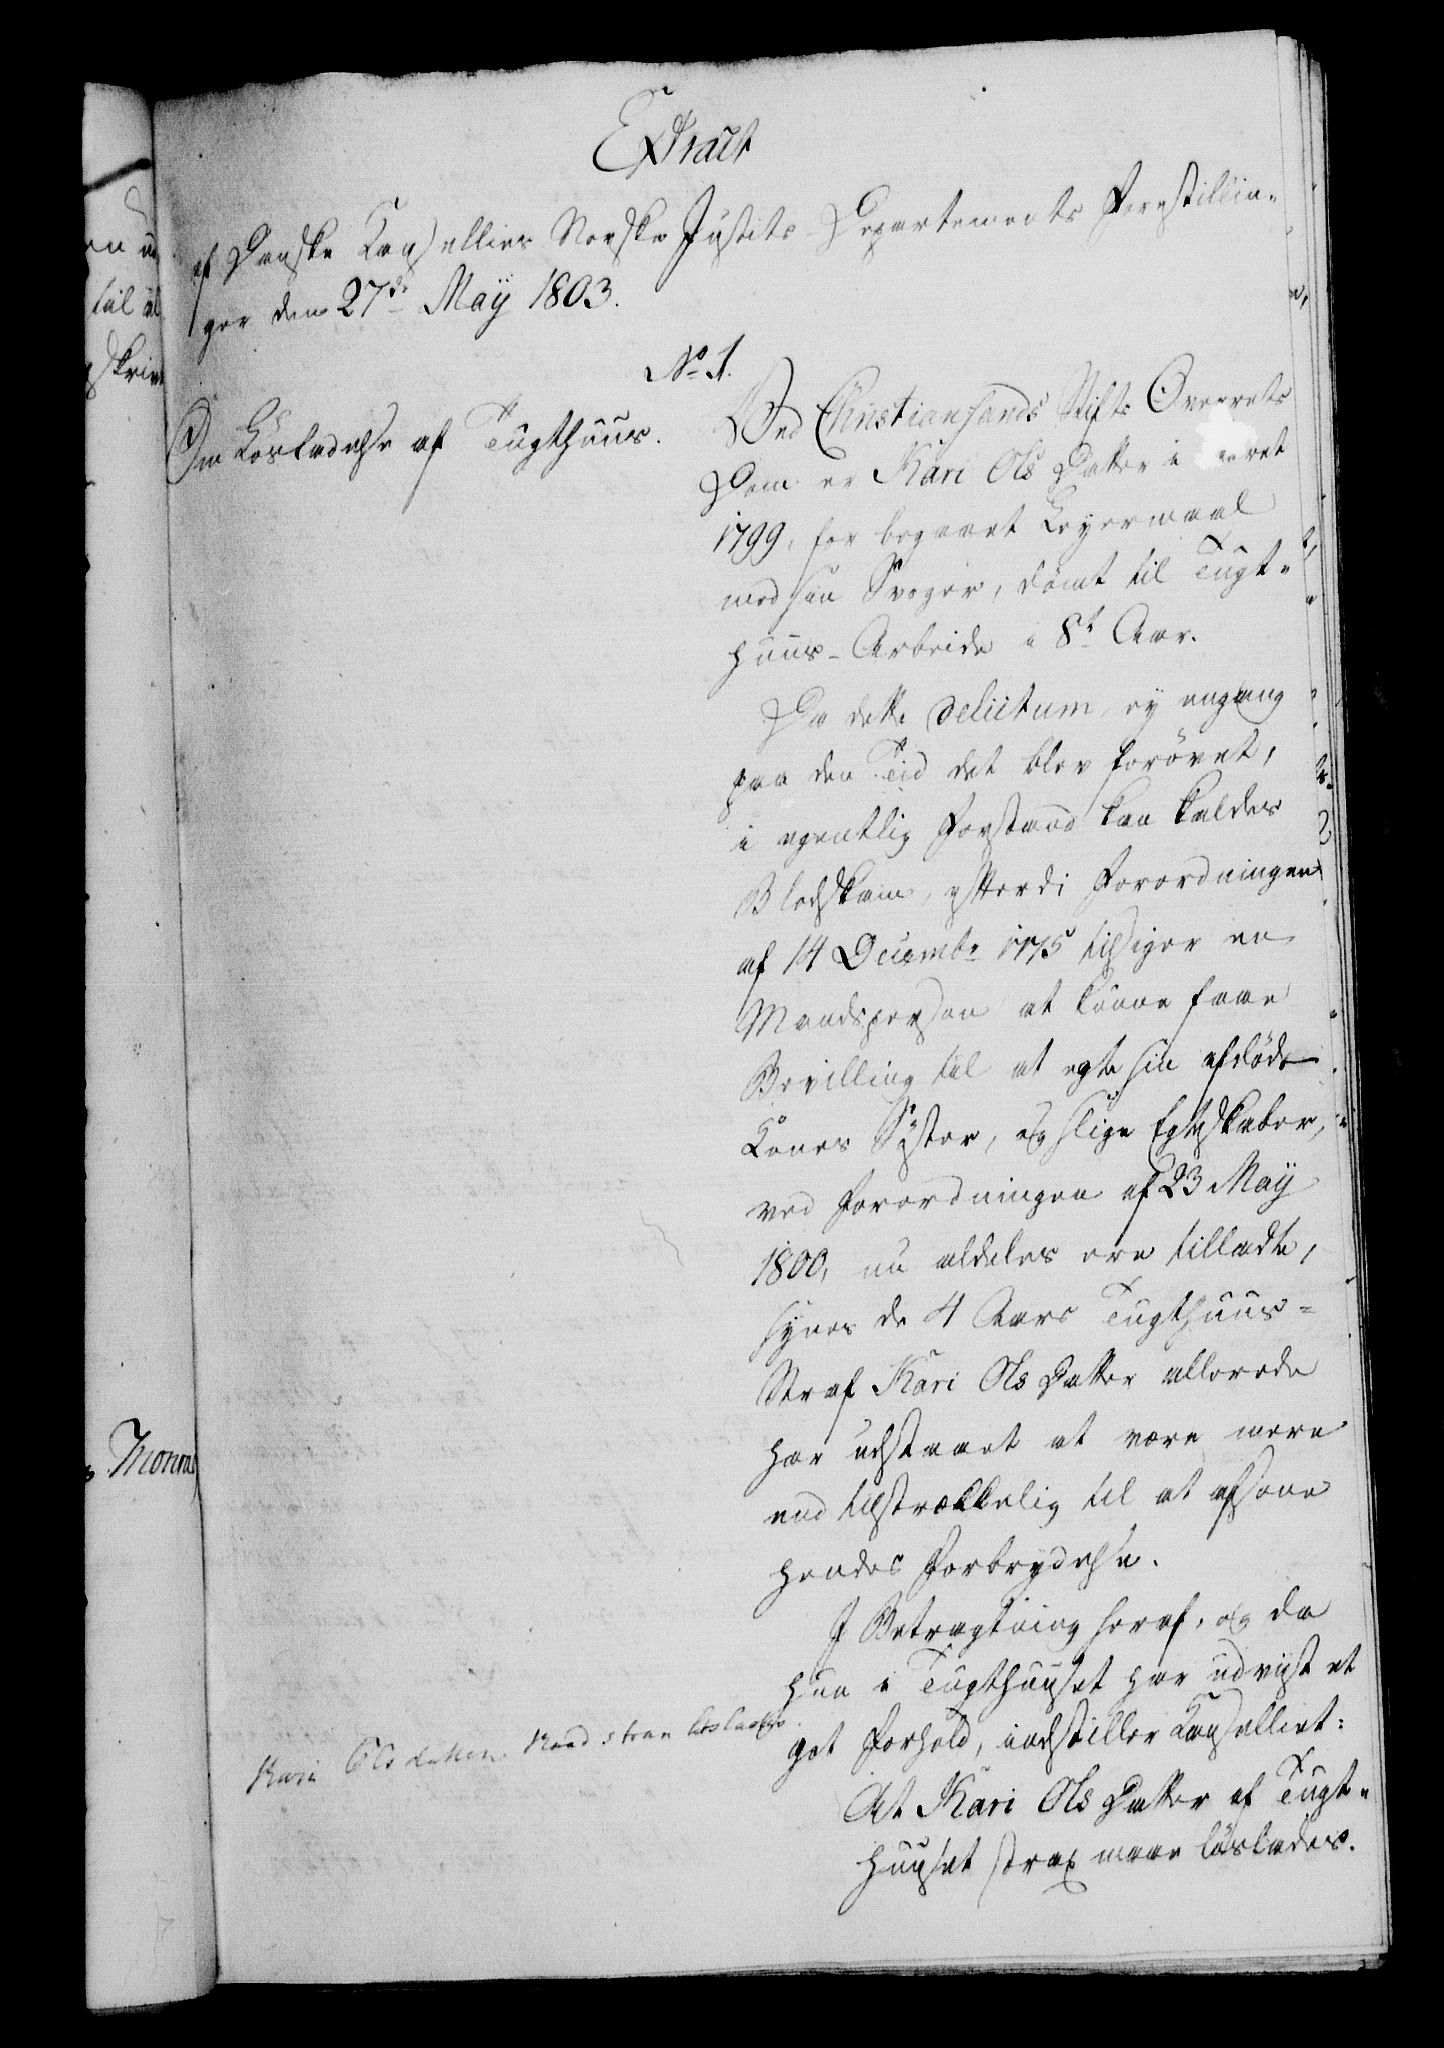 Extract
af Danske Cancelliets Norske Justits-Departements Forestillin-
ger den 27de May 1803.
No 1.
Om Løsladelse af Tugthuus.
Ved Christiansands Stifts Overrets
Dom er Kari Ols Datter i Aaret
1799, for begaaet Leyermaal
med sin Svoger, dömt til Tugt-
huus-Arbeide i 8t Aar.
Da dette delictum, ey engang
paa den Tid det blev forövet,
i egentlig Forstand kan kaldes
Blodskam, efterdi Forordningen
af 14 Decembr 1775 tilsiger en
Mandsperson at kunne faae
Bevilling til at egte sin afdöde
Kones Söster, og slige Egteskaber,
ved Forordningen af 23 May
1800, nu aldeles ere tilladte,
synes de 4 Aars Tugthuus-
Straf Kari Ols Datter allerede
har udstaaet at være mere
end tilstrækkelig til at afsone
hendes Forbrydelse.
I Betragtning heraf, og da
hun i Tugthuuset har udviist et
got Forhold, indstiller Cancelliet:
At Kari Ols Datter af Tugt-
huuset strax maae löslades.
Kari Ols Datter
til
Thomas